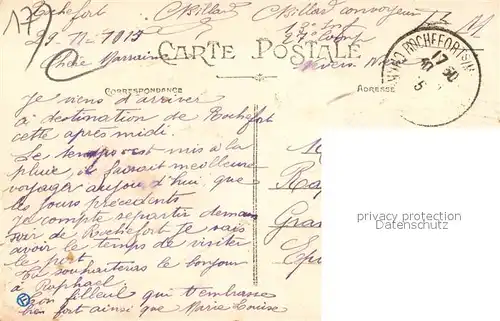 177
Rochefort
29-11-1915
C Billard
C Billard convoyeur
CARTE POSTALE
Chère Marraine
CORRESPONDANCE
ADRESSE
ROCHEFORT S/M
17 30
Je viens d'arriver
à destination de Rochefort
cette après midi.
Le temps est mis à la
pluie, il faisait meilleure
voyager aujourd'hui que
les jours précédents
Je compte repartir demain
soir de Rochefort Je vais
avoir le temps de visiter
le port
Tu souhaiteras le bonjour
à Raphael.
Ton filleul qui t'embrasse
bien fort ainsi que Marie Louise
privacy protection
Datenschutz